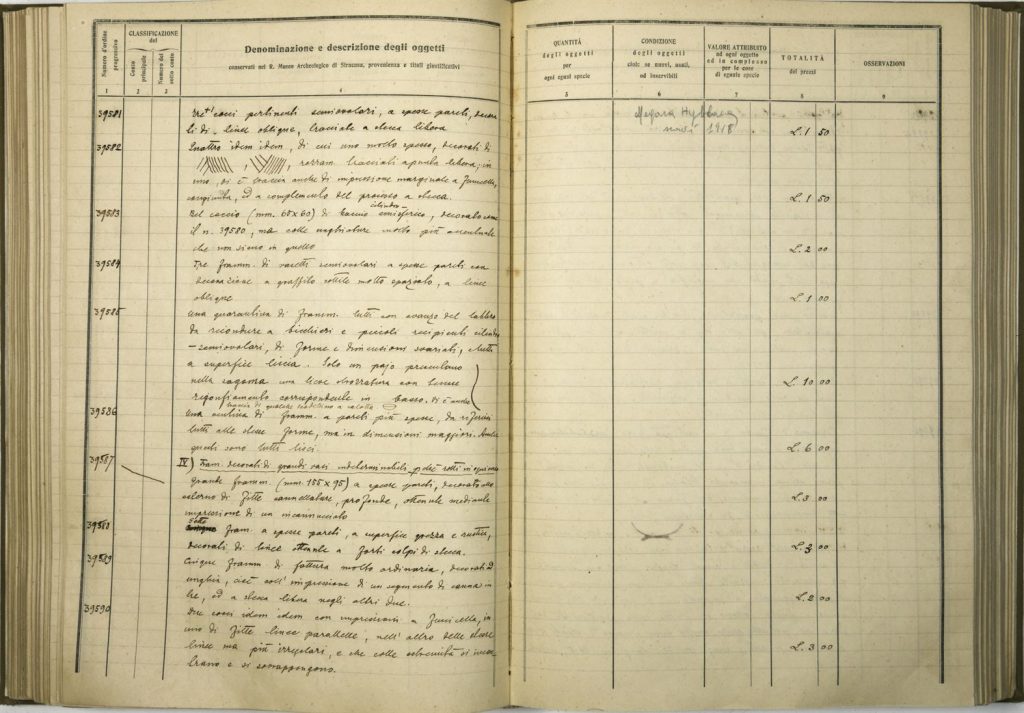 Numero d'ordine progressivo
CLASSIFICAZIONE del
Conto principale
Numero del sotto conto
Denominazione e descrizione degli oggetti
conservati nel R. Museo Archeologico di Siracusa, provenienza e titoli giustificativi
1 2 3 4
39581 cocci pertinenti semiovolari, a spesse pareti, decora
ti di linee oblique, tracciate a stecca libera
39582 Quattro idem idem, di cui uno molto spesso, decorati di
tracciati a punta libera; in
uno, si è traccia anche di impressione marginale a funicella,
congiunta, ed a complemento del processo a stecca.
39583 Bel coccio (mm. 65x60) di emisferico, decorato come
cilindro
il n. 39580, ma colle unghiature molto più accentuate
che non siano in quello
39584 Tre framm. di vasetti semiovolari a spesse pareti con
decorazione a graffito sottile molto spaziato, a linee
oblique
39585 Una quarantina di framm. tutti con avanzo del labbro
da ricondurre a bicchieri e piccoli recipienti cilindro
-semiovolari, di forme e dimensioni svariati, tutti
a superficie liscia. Solo un pajo presentano
nella sagoma una lieve con lieve
rigonfiamento corrispondente in basso. Vi è anche
traccia di qualche
39586 Una ventina di framm. a pareti più spesse, da riferirsi
tutti alle stesse forme, ma in dimensioni maggiori. Anche
questi sono tutti lisci
39587 IV) Fram. decorati di grandi vasi indeterminabili
Grande framm. (mm. 155x95) a spesse pareti, decorato allo
esterno di fitte cannellature, profonde, ottenute mediante
impressione di un incannucciato
39588 Sette fram. a spesse pareti, a superficie grezza e rustica,
decorati di linee ottenute a forti colpi di stecca.
39589 Cinque framm. di fattura molto ordinaria, decorati ad
unghia, cioè coll'impressione di un segmento di canna in
tre, ed a stecca libera negli altri due.
39590 Due cocci idem idem con impressioni a funicella, in
uno di fitte linee parallele, nell'altro delle stesse
linee ma più irregolari, e che colle estremità si
e si sovrappongono.
QUANTITÀ degli oggetti per ogni eguai specie
CONDIZIONE degli oggetti cioè: se nuovi, usati, od inservibili
VALORE ATTRIBUITO ad ogni oggetto ed in complesso per le cose di eguale specie
TOTALITÀ dei prezzi
OSSERVAZIONI
5 6 7 8 9
Megara Hyblaea
scavi 1918
L. 1 50
L. 1 50
L. 2 00
L. 1 00
L. 10 00
L. 6 00
L. 3 00
L. 3 00
L. 2 00
L. 3 00